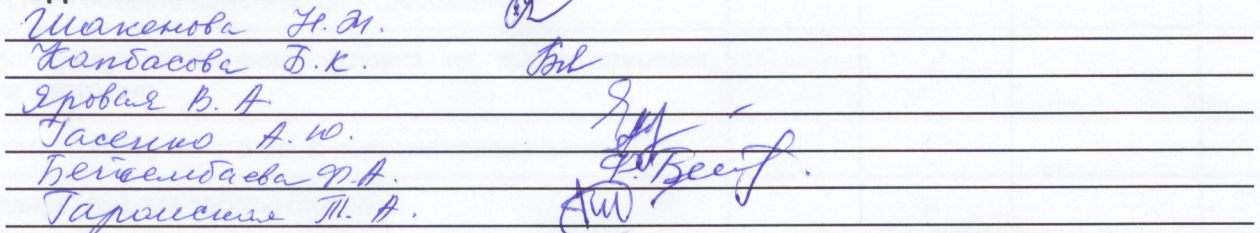 Шакенова Н.М.
Капбасова Б.К.
Яровая В.А
Гасенко А.Ю.
Бейсембаева Ф.А. Ф. Бейс
Гаранская Т.А.